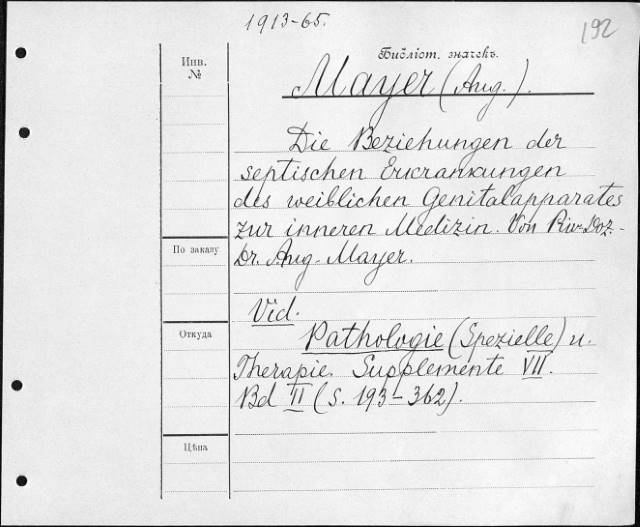 1913-65.
192
Библіот. значекъ.
Инв.
№
Mayer (Aug.).
Die Beziehungen der
septischen Erkrankungen
des weiblichen Genitalapparates
zur inneren Medizin. Von Priv-Doz.
Dr. Aug. Mayer.
По заказу
Vid.
Откуда
Pathologie (Spezielle) u.
Therapie. Supplemente VII.
Bd II (S. 193-362).
Цѣна